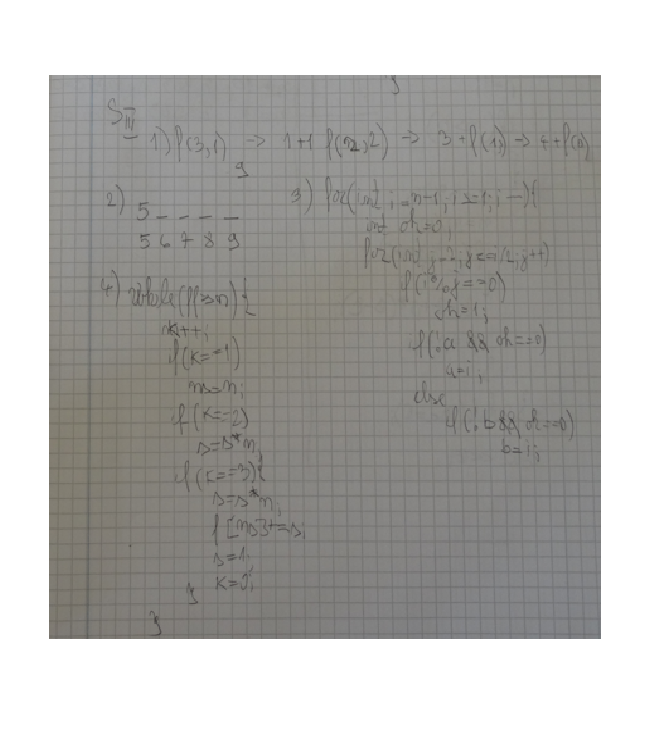 S III
1) f(3,1) => 1+1 f(2,2) => 3+f(1,) => 4+f(
9
2) 5 _ _ _ _
5 6 7 8 9
3) for(int i=n-1; i>=1; i--){
int ok=0;
for(int j=2; j<=i/2; j++)
if(i%j==0)
ok=1;
if(!a && ok==0)
a=i;
else
if(!b && ok==0)
b=i;
4) while(f>>n){
k++;
if(k==1)
ns=n;
if(k==2)
s=s*n;
if(k==3){
s=s*n;
f[ns]+=s;
s=1;
k=0;
}
}